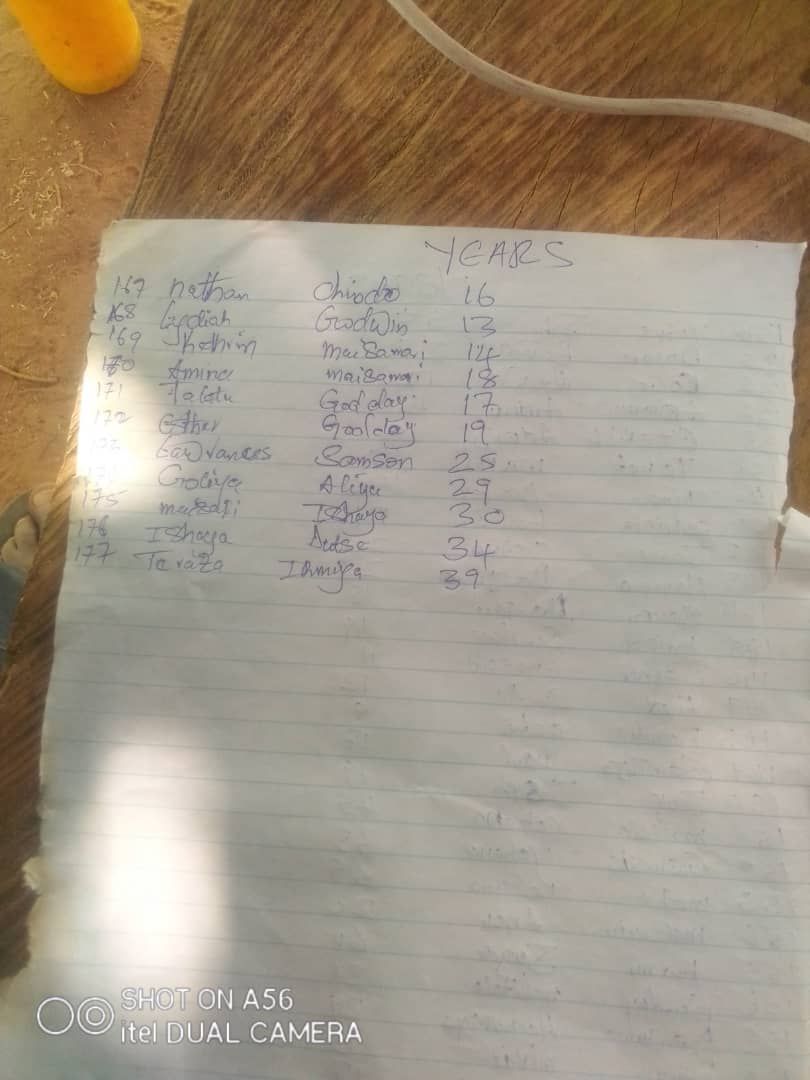 YEARS
167 Nathan Chindo 16
168 Lydiah Godwin 13
169 maisamari 14
170 Amina maisamari 18
171 Talatu Godday 17
172 Esther Goodday 19
173 Lawrances Samson 25
Goliya Aliya 29
175 Ishaya 30
176 Ishaya Audse 34
177 Teraza Irmiya 39
SHOT ON A56
itel DUAL CAMERA